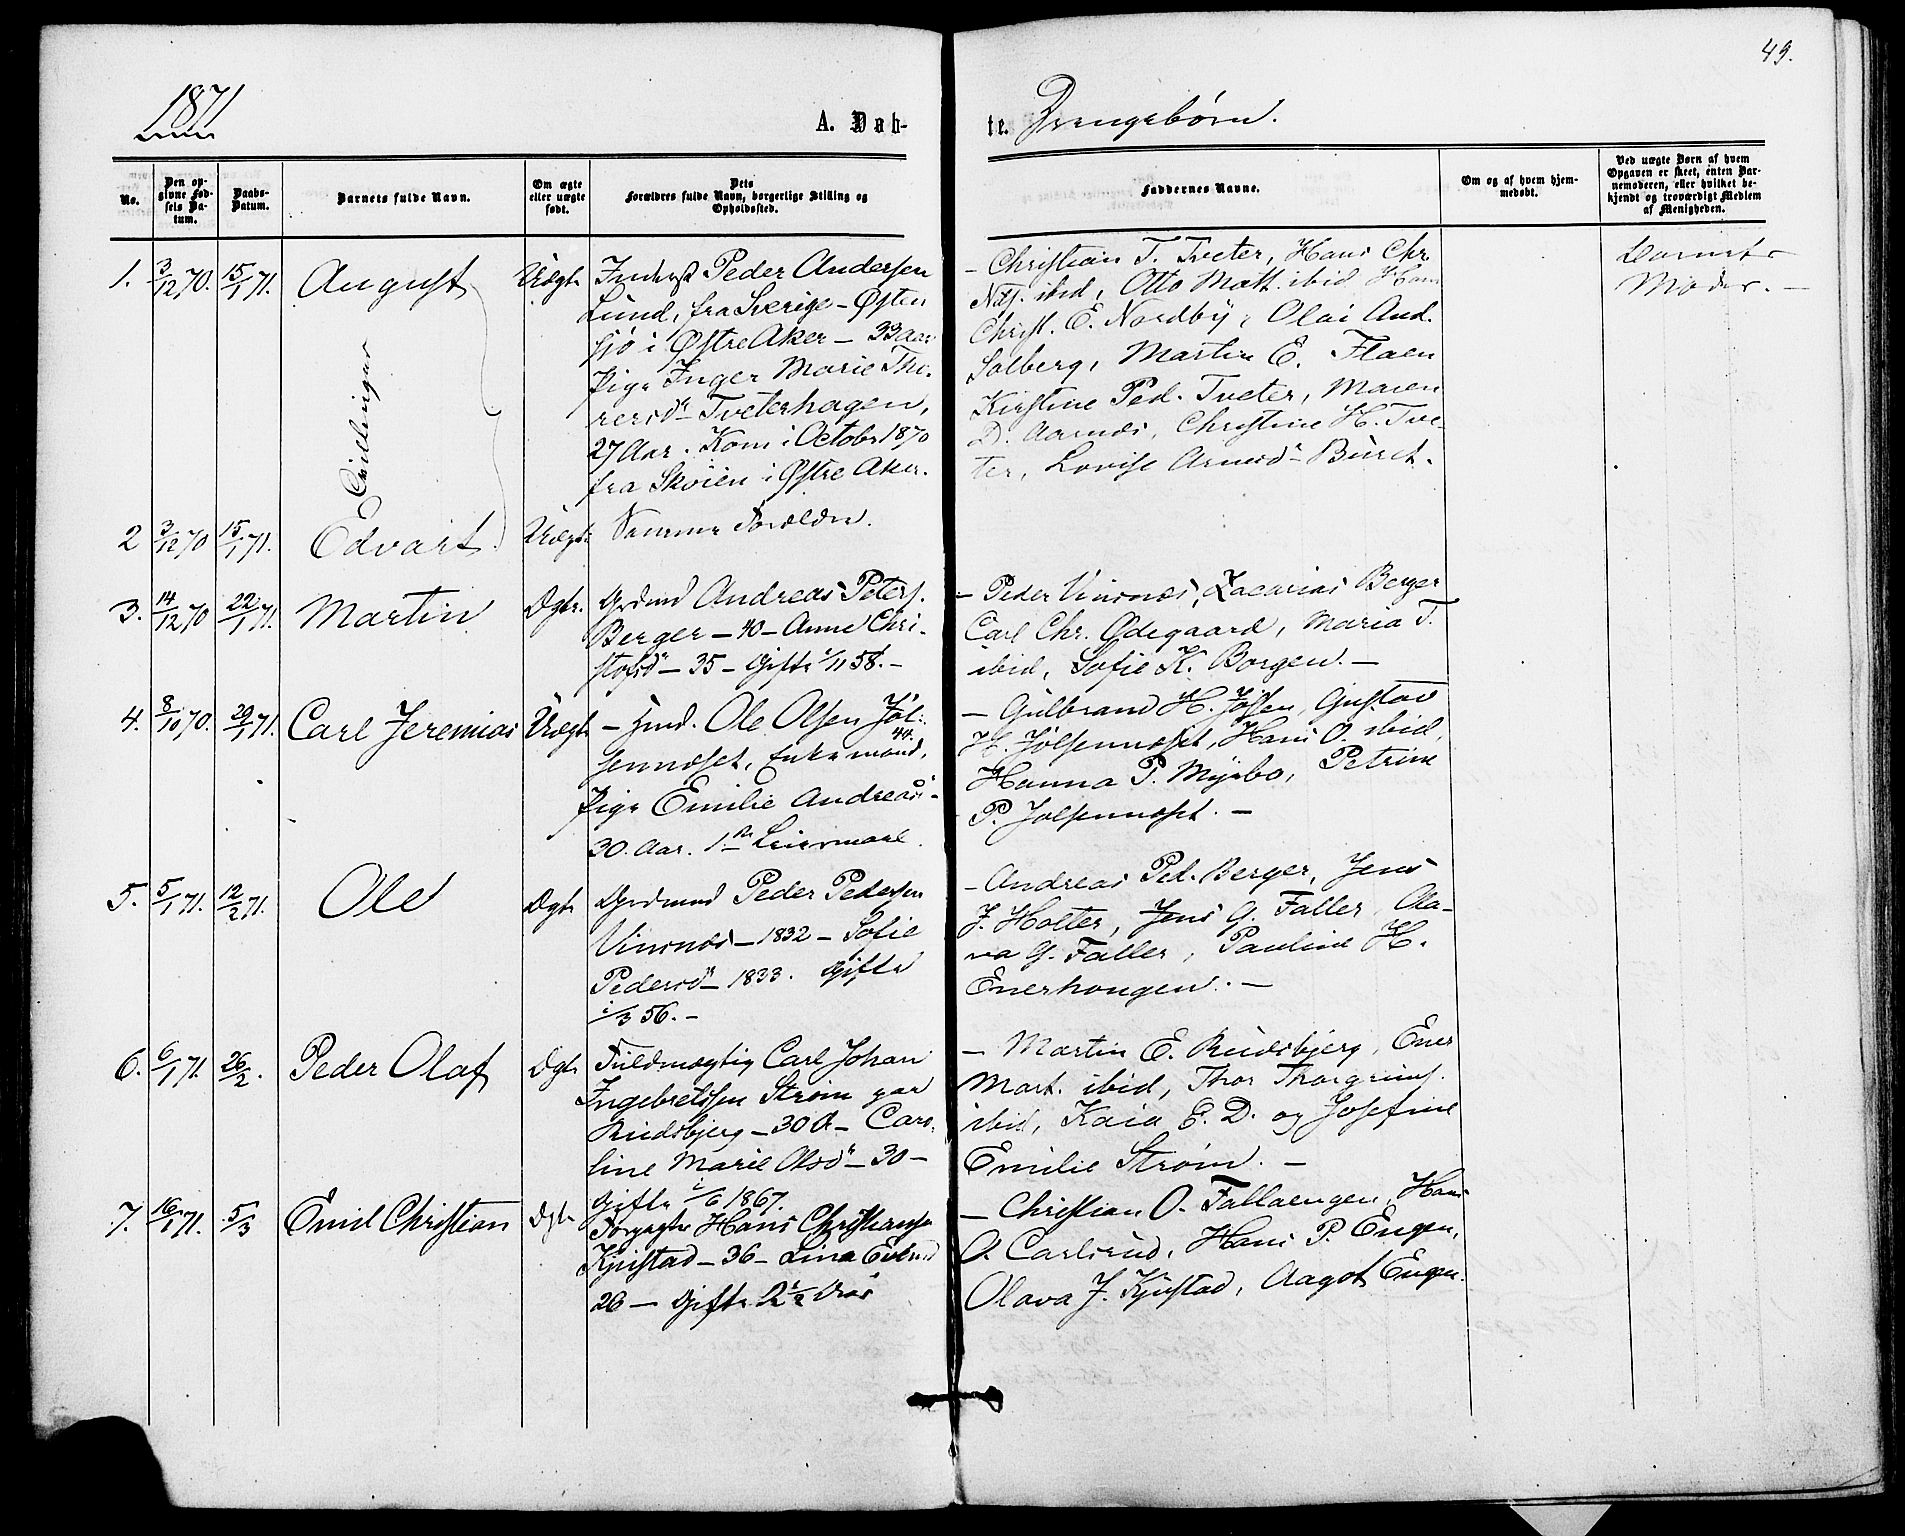 49.
1871
A. Døb-
te. Drengebørn.
No.
Den op-
givne Fød-
sels Da-
tum.
Daabs-
Datum.
Barnets fulde Navn.
Om ægte
eller uægte
født.
Dets
Forældres fulde Navn, borgerlige Stilling og
Opholdssted.
Faddernes Navne.
Om og af hvem hjem-
medøbt.
Ved uægte Børn af hvem
Opgaven er skeet, enten Bar-
nemoderen, eller hvilket be-
kjendt og troværdigt Medlem
af Menigheden.
1. 3/12 70. 15/1 71. August Uægte
Inderst Peder Andersen
Lund, fra Sverige - Østen
sjø i Østre Aker - 33 Aar
Pige Inger Marie Tho-
rersdr Tveterhagen,
27 Aar. Kom i Octobr 1870
fra Skøien i Østre Aker.
- Christian T. Tveter, Hans Chr.
ibid, Otto Matt. ibid Hans
Christ. E. Nordby, Olai And.
Solberg, Martin E. Flaen
Kirstine Ped. Tveter, Maren
D. Aarnæs, Christine H. Tve-
ter, Lovise
Barnets
Moder. -
Tvillinger
2 3/12 70 15/1 71. Edvart. Uægte Samme Forældre.
3. 14/12 70 22/1 71. Martin Ægte.
Grdmd Andreas Peters.
Berger - 40 - Anne Chri-
stofsdr - 35 - Gifte i/11 58. -
- Peder Vinsnæs, Zacarias Berger
Carl Chr. Ødegaard, Maria T.
ibid, Sofie K. Borgen. -
4. 8/10 70. 29/1 71. Carl Jeremias Uægte
- Hmd. Ole Olsen Jøl-
44.
sennæset, Enkemand,
Pige Emilie Andreasdr -
30 Aar. 1ste Leiermaal.
- Gulbrand H. Jølsen, Gustav
H. Jølsennæset, Hans O. ibid,
Hanna P. Myrbo, Petrine
P. Jølsennæset. -
5. 5/1 71. 12/2 71. Ole Ægte
Grdmand Peder Pedersen
Vinsnæs - 1832 - Sofie
Pedersdr - 1833. Gifte
i/3 56. -
- Andreas Ped. Berger, Jens
J. Holter, Jens G. Faller, Ola-
va G. Faller, Pauline H.
Enerhougen. -
6. 6/1 71. 26/2. Peder Olaf Ægte
Fuldmægtig Carl Johan
Ingebretssen Strøm paa
Rudsbjerg - 30 A - Caro-
line Marie Olsdr - 30 -
Gifte i/6 1867.
- Martin E. Rudsbjerg, Ener
Mart. ibid, Thor Thorgrims.
ibid, Kaia E. D. og Josefine
Emilie Strøm. -
7. 16/1 71. 5/3 Emil Christian Ægte
Forpagter Hans Christiansen
Kjnstad - 36 - Lina
26 - Gifte 2 1/2
- Christian O. Fallaengen, Hans
O. Carlsrud, Hans P. Engen,
Olava J. Kjnstad, Aagot Engen.